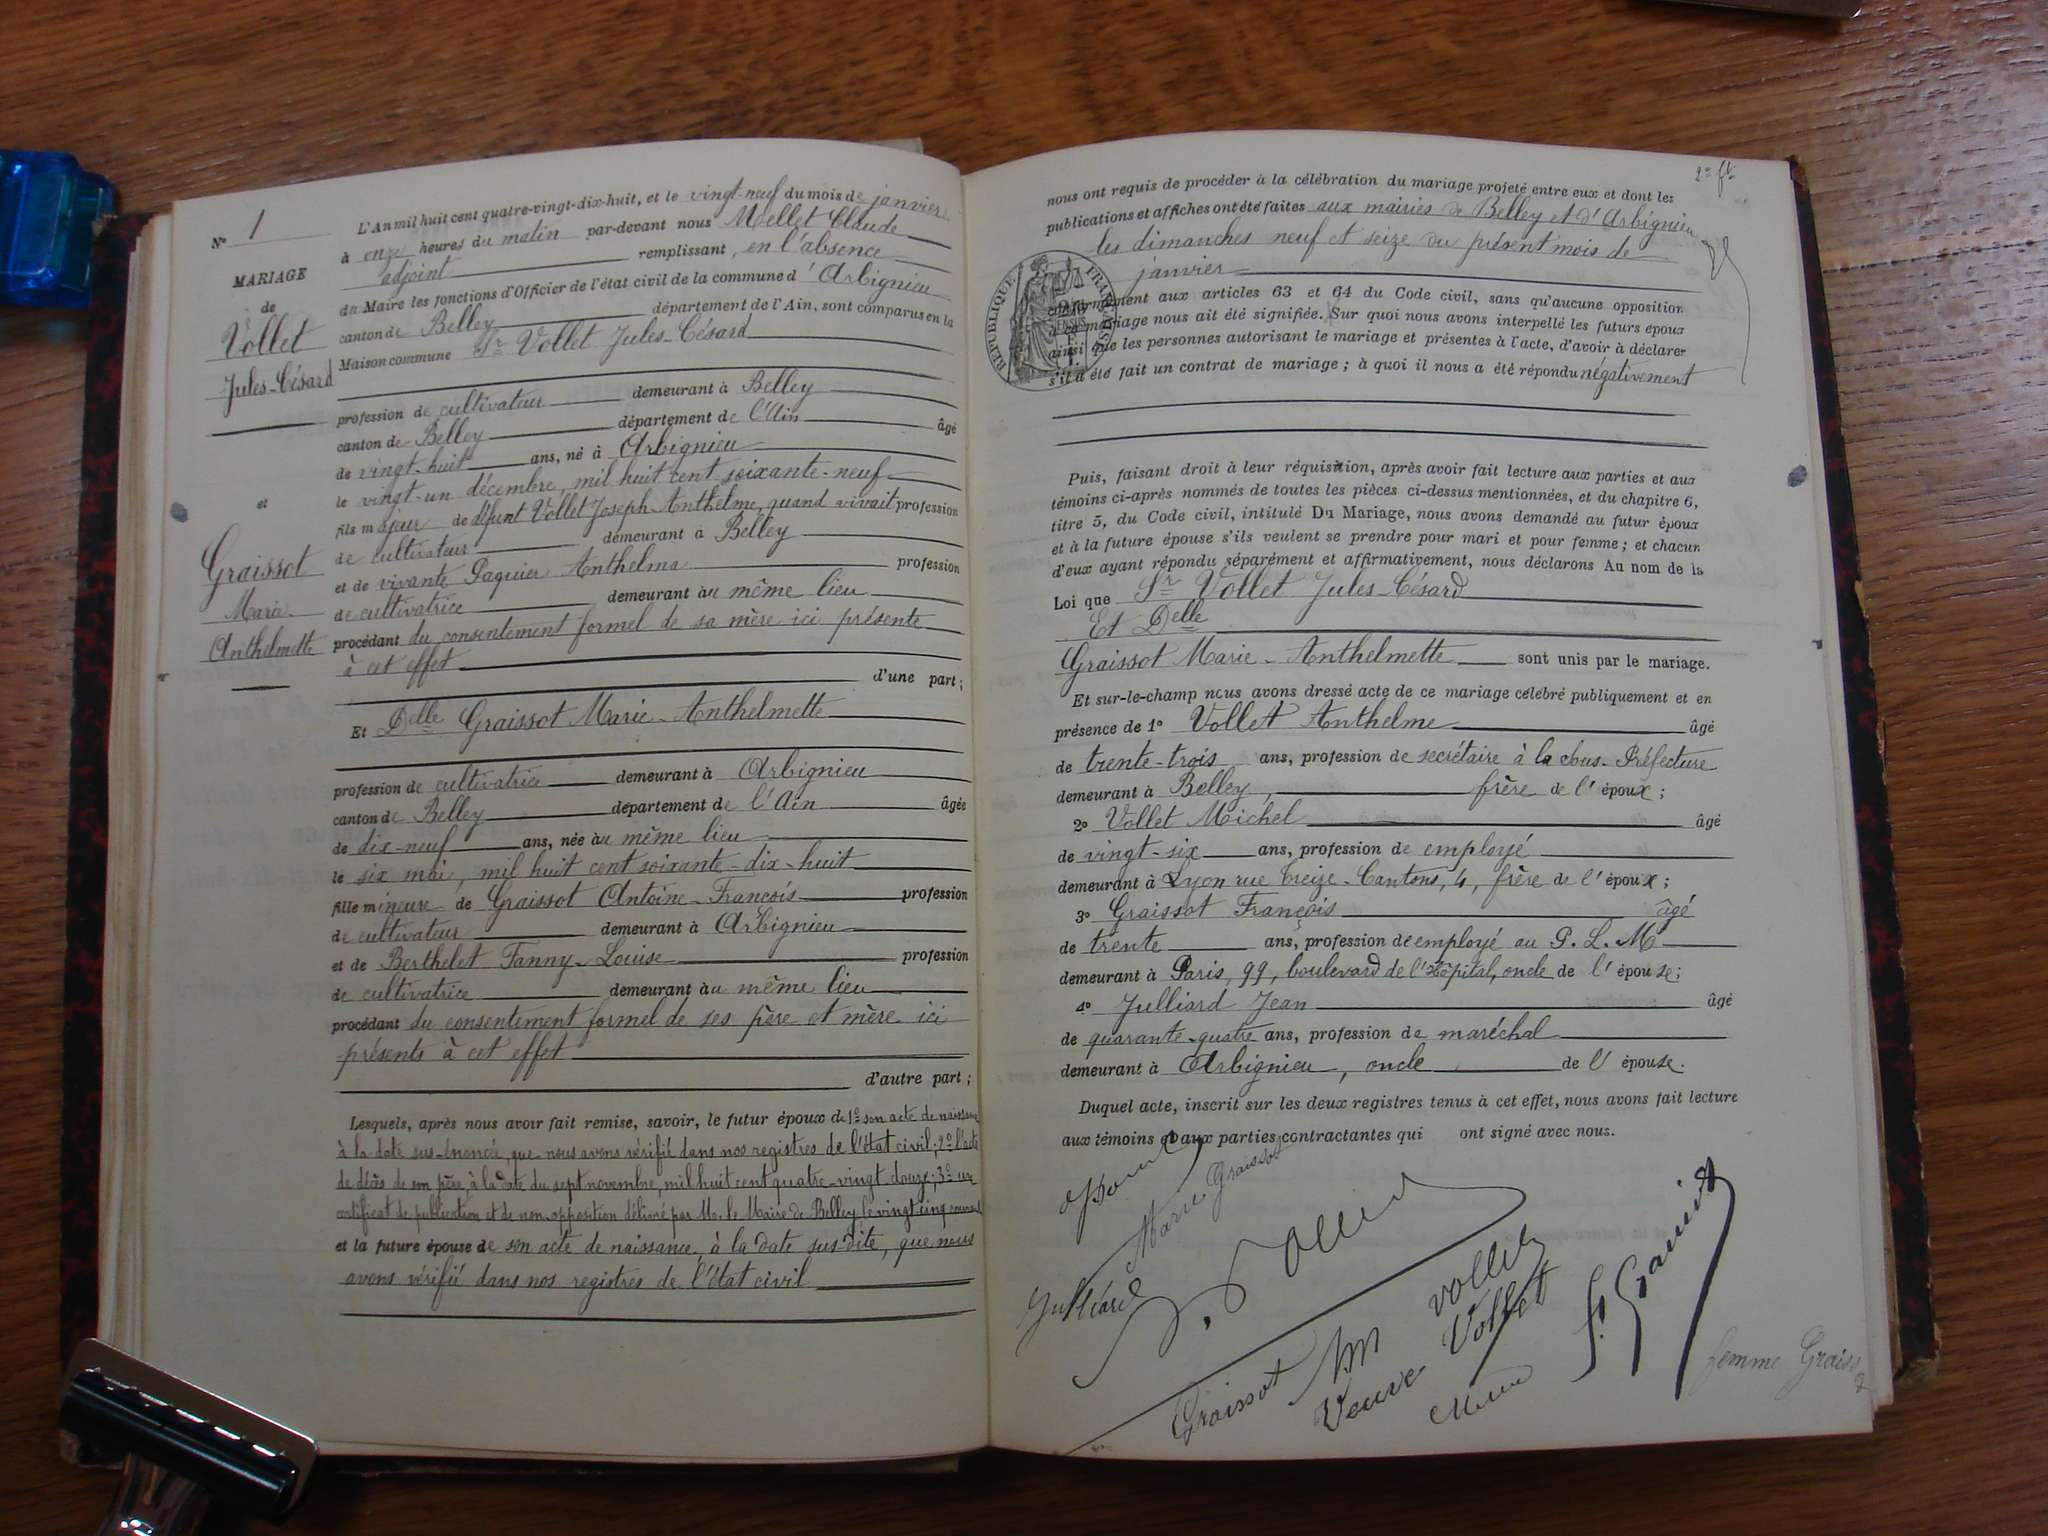 N° 1
MARIAGE
de
Vollet
Jules-Césard
et
Graissot
Marie
Anthelmette
L'An mil huit cent quatre-vingt-dix-huit, et le vingt-neuf du mois de janvier
à onze heures du matin par-devant nous Mellet Claude
adjoint remplissant, en l'absence
du Maire les fonctions d'Officier de l'état civil de la commune d'Arbignieu
canton de Belley département de l'Ain, sont comparus en la
Maison commune Sr Vollet Jules-Césard
profession de cultivateur demeurant à Belley
canton de Belley département de l'Ain âgé
de vingt-huit ans, né à Arbignieu
le vingt-un décembre, mil huit cent soixante-neuf
fils majeur de défunt Vollet Joseph-Anthelme, quand vivait profession
de cultivateur demeurant à Belley
et de vivante Paquier Anthelma profession
de cultivatrice demeurant au même lieu
procédant du consentement formel de sa mère ici présente
à cet effet
d'une part;
Et Delle Graissot Marie-Anthelmette
profession de cultivatrice demeurant à Arbignieu
canton de Belley département de l'Ain âgée
de dix-neuf ans, née au même lieu
le six mai, mil huit cent soixante-dix-huit
fille mineure de Graissot Antoine-François profession
de cultivateur demeurant à Arbignieu
et de Berthelet Fanny-Louise profession
de cultivatrice demeurant au même lieu
procédant du consentement formel de ses père et mère ici
présents à cet effet
d'autre part;
Lesquels, après nous avoir fait remise, savoir, le futur époux de 1° son acte de naissance
à la date sus-énoncée que nous avons vérifié dans nos registres de l'état civil; 2° l'acte
de décès de son père, à la date du sept novembre, mil huit cent quatre-vingt-douze; 3° un
certificat de publication et de non-opposition délivré par M. le Maire de Belley le vingt cinq courant
et la future épouse de son acte de naissance, à la date sus dite, que nous
avons vérifié dans nos registres de l'état civil
2e ft
nous ont requis de procéder à la célébration du mariage projeté entre eux et dont les
publications et affiches ont été faites aux mairies de Belley et d'Arbignieu
les dimanches neuf et seize du présent mois de
janvier
RÉPUBLIQUE FRANÇAISE
conformément aux articles 63 et 64 du Code civil, sans qu'aucune opposition
à ce mariage nous ait été signifiée. Sur quoi nous avons interpellé les futurs époux
ainsi que les personnes autorisant le mariage et présentes à l'acte, d'avoir à déclarer
s'il a été fait un contrat de mariage; à quoi il nous a été répondu négativement
Puis, faisant droit à leur réquisition, après avoir fait lecture aux parties et aux
témoins ci-après nommés de toutes les pièces ci-dessus mentionnées, et du chapitre 6,
titre 5, du Code civil, intitulé Du Mariage, nous avons demandé au futur époux
et à la future épouse s'ils veulent se prendre pour mari et pour femme; et chacun
d'eux ayant répondu séparément et affirmativement, nous déclarons Au nom de la
Loi que Sr Vollet Jules-Césard
Et Delle
Graissot Marie-Anthelmette sont unis par le mariage.
Et sur-le-champ nous avons dressé acte de ce mariage célébré publiquement et en
présence de 1° Vollet Anthelme âgé
de trente-trois ans, profession de secrétaire à la Sous-Préfecture
demeurant à Belley, frère de l'époux;
2° Vollet Michel âgé
de vingt-six ans, profession de employé
demeurant à Lyon rue Treize-Cantons, 4, frère de l'époux;
3° Graissot François âgé
de trente ans, profession de employé au P. L. M
demeurant à Paris, 99, boulevard de l'Hôpital, oncle de l'épouse;
4° Julliard Jean âgé
de quarante-quatre ans, profession de maréchal
demeurant à Arbignieu, oncle de l'épouse.
Duquel acte, inscrit sur les deux registres tenus à cet effet, nous avons fait lecture
aux témoins et aux parties contractantes qui ont signé avec nous.
Marie Graissot
Julliard
J. Vollet
Graissot
M Vollet
Veuve Vollet
f. Graissot
femme Graiss